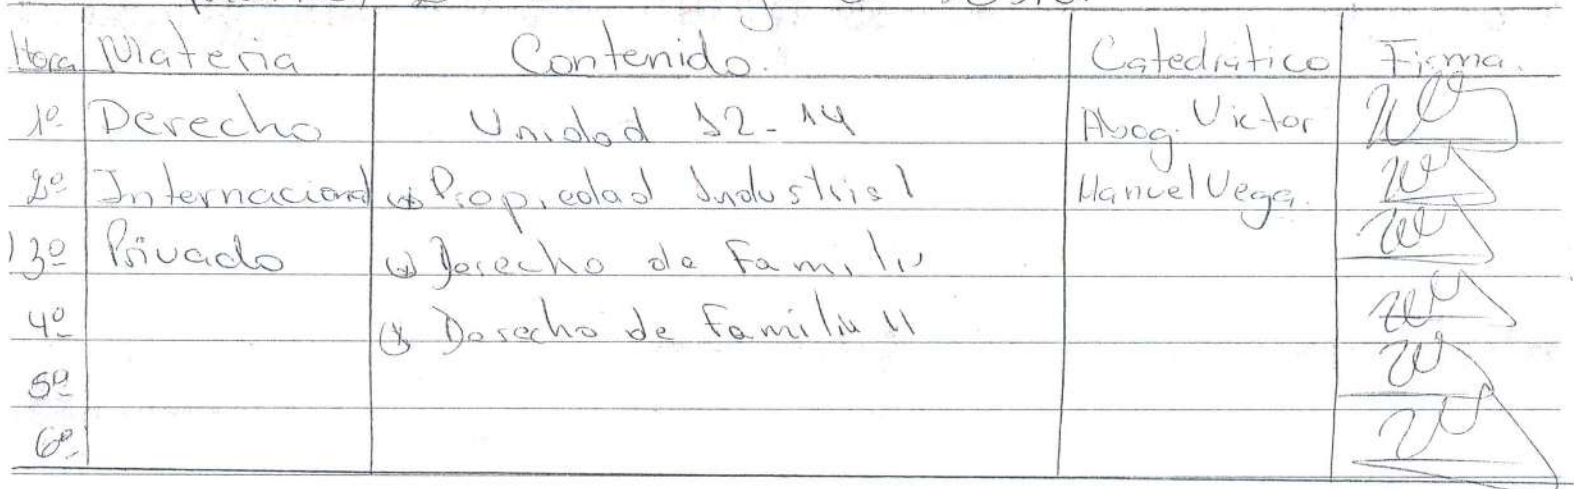 Hora Materia Contenido. Catedrático Firma.
1º Derecho Unidad 12-14 Abog. Victor
2º Internacional Propiedad Industrial Manuel Vega.
3º Privado Derecho de Famili
4º Derecho de Familia II
5º
6º